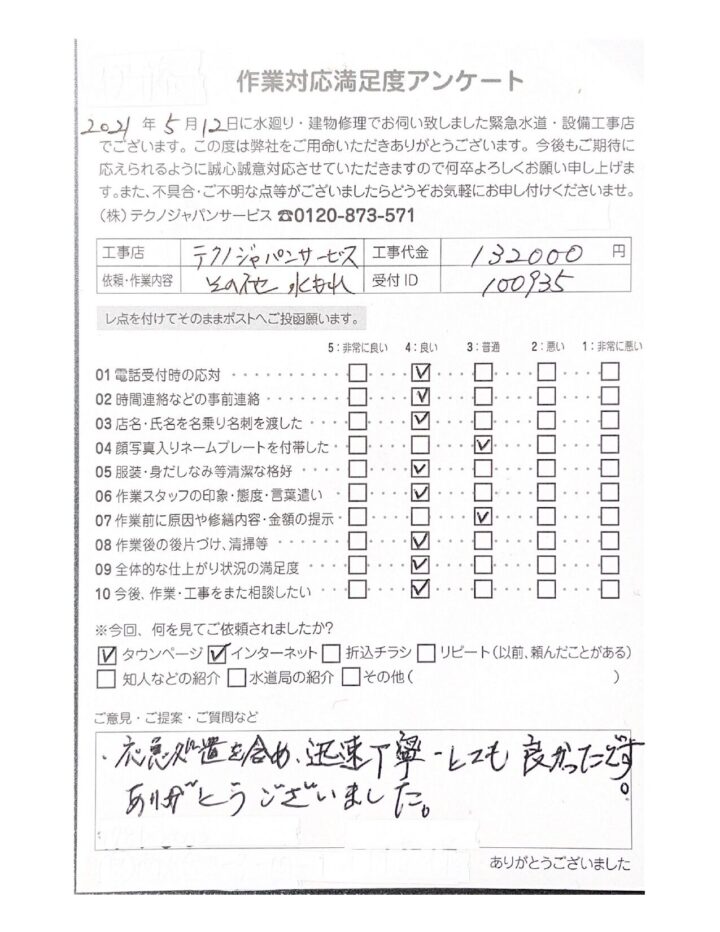 作業対応満足度アンケート
2021年5月12日に水廻り・建物修理でお伺い致しました緊急水道・設備工事店
でございます。この度は弊社をご用命いただきありがとうございます。今後もご期待に
応えられるように誠心誠意対応させていただきますので何卒よろしくお願い申し上げま
す。また、不具合・ご不明な点等がございましたらどうぞお気軽にお申し付けくださいませ。
（株）テクノジャパンサービス ☎0120-873-571
工事店 テクノジャパンサービス 工事代金 132000 円
依頼・作業内容 その他 水もれ 受付ID 100935
レ点を付けてそのままポストへご投函願います。
5：非常に良い 4：良い 3：普通 2：悪い 1：非常に悪い
01 電話受付時の応対 ☐ ☑ ☐ ☐ ☐
02 時間連絡などの事前連絡 ☐ ☑ ☐ ☐ ☐
03 店名・氏名を名乗り名刺を渡した ☐ ☑ ☐ ☐ ☐
04 顔写真入りネームプレートを付帯した ☐ ☐ ☑ ☐ ☐
05 服装・身だしなみ等清潔な格好 ☐ ☑ ☐ ☐ ☐
06 作業スタッフの印象・態度・言葉遣い ☐ ☑ ☐ ☐ ☐
07 作業前に原因や修繕内容・金額の提示 ☐ ☐ ☑ ☐ ☐
08 作業後の後片づけ、清掃等 ☐ ☑ ☐ ☐ ☐
09 全体的な仕上がり状況の満足度 ☐ ☑ ☐ ☐ ☐
10 今後、作業・工事をまた相談したい ☐ ☑ ☐ ☐ ☐
※今回、何を見てご依頼されましたか?
☑タウンページ ☑インターネット ☐折込チラシ ☐リピート（以前、頼んだことがある）
☐知人などの紹介 ☐水道局の紹介 ☐その他（ ）
ご意見・ご提案・ご質問など
・応急処置を含め、迅速丁寧でとても良かったです。
ありがとうございました。
ありがとうございました